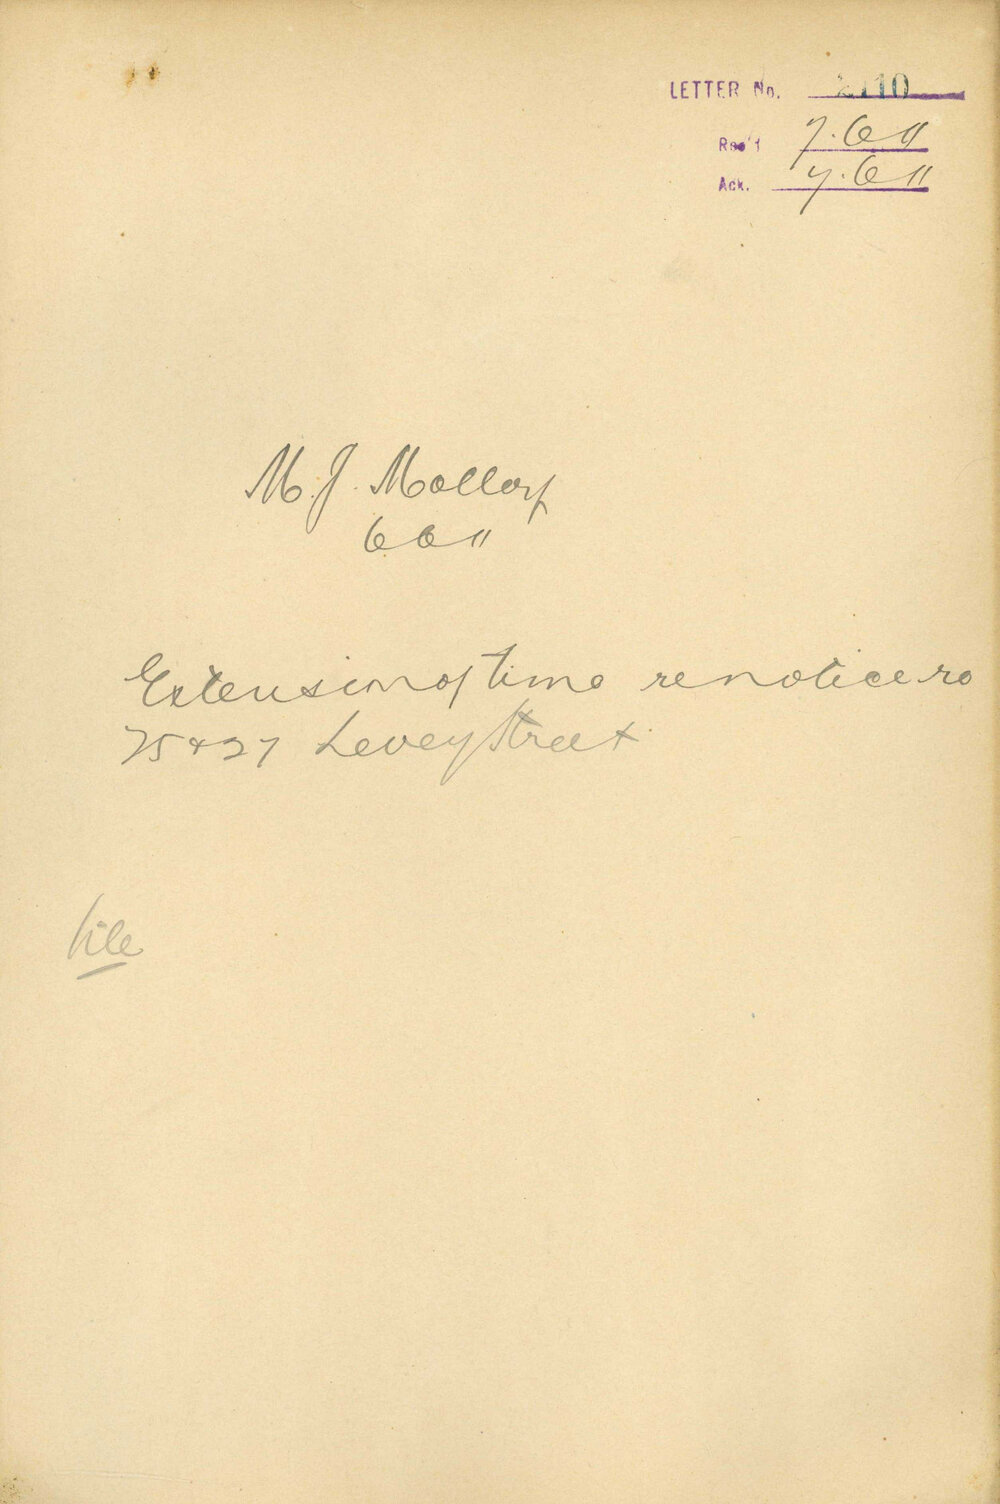 LETTER No. 2110
Rec'd 7.6 11
Ack. 7.6 11
M. J. Mallory
6 6 11
Extension of time re notice re
25 & 27 Levey Street
File